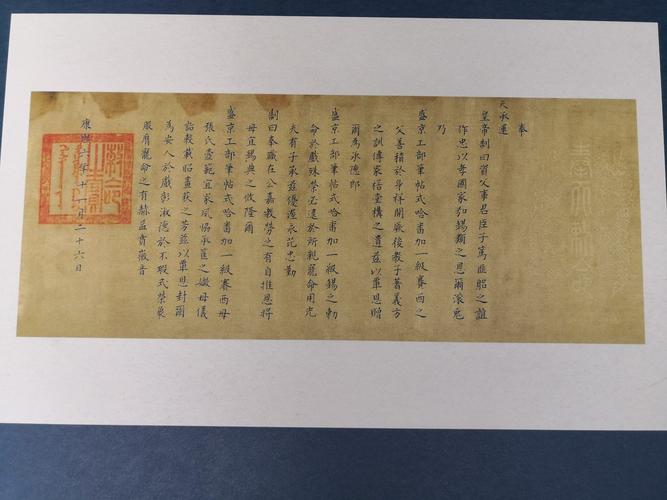 奉
天承運
皇帝制曰資父事君臣子篤匪躬之誼
作忠以孝國家弘錫類之恩爾派
乃
盛京工部筆帖式哈番加一級賽西之
父善積於身祥開厥後教子著義方
之訓傳家裕堂構之遺茲以覃恩贈
爾為承德郎
盛京工部筆帖式哈番加一級錫之勅
命於戲殊榮必逮於所親寵命用光
夫有子承茲優渥永范忠勤
制曰奉職在公嘉教勞之有自推恩將
母宜錫典之攸隆爾
盛京工部筆帖式哈番加一級賽西母
張氏壼範宜家夙協承筐之媺母儀
詒穀載昭畫荻之芳茲以覃恩封爾
為安人於戲彰淑德於不瑕式榮象
服膺寵命之有赫益賁徽音
康熙六年十一月二十六日